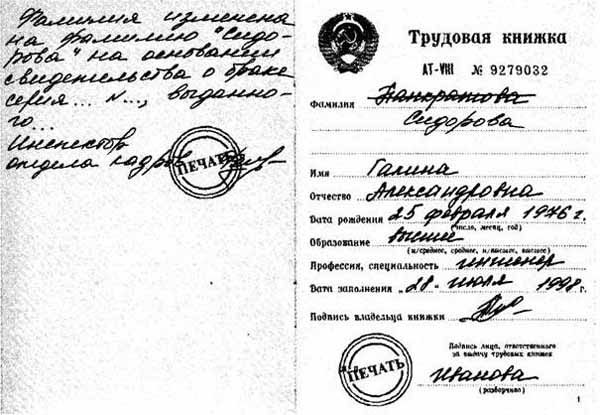 Фамилия изменена
на фамилию "Сидо-
рова" на основании
свидетельства о браке
серия... N..., выданно-
го...
Инспектор
отдела кадров
ПЕЧАТЬ
Трудовая книжка
АТ-VIII № 9279032
Фамилия Панкратова
Сидорова
Имя Галина
Отчество Александровна
Дата рождения 25 февраля 1976 г.
(число, месяц, год)
Образование высшее
(н/среднее, среднее, н/высшее, высшее)
Профессия, специальность инженер
Дата заполнения „28" июля 1998 г.
Подпись владельца книжки
Подпись лица, ответственного
за выдачу трудовых книжек
ПЕЧАТЬ
Иванова
(разборчиво)
1